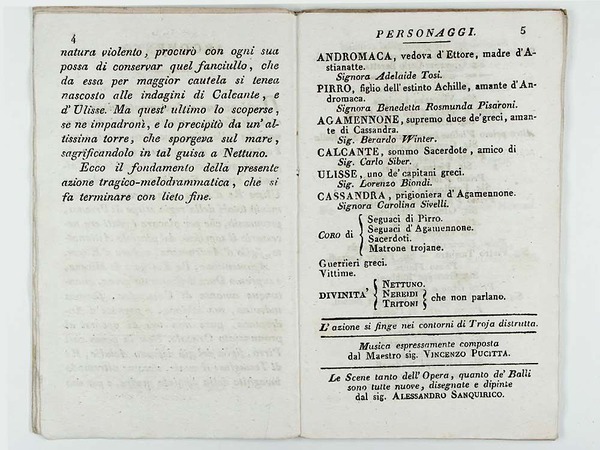 4
natura violento, procurò con ogni sua
possa di conservar quel fanciullo, che
da essa per maggior cautela si tenea
nascosto alle indagini di Calcante, e
d'Ulisse. Ma quest'ultimo lo scoperse,
se ne impadronì, e lo precipitò da un'al-
tissima torre, che sporgeva sul mare,
sagrificandolo in tal guisa a Nettuno.
Ecco il fondamento della presente
azione tragico-melodrammatica, che si
fa terminare con lieto fine.
PERSONAGGI. 5
ANDROMACA, vedova d'Ettore, madre d'A-
stianatte.
Signora Adelaide Tosi.
PIRRO, figlio dell'estinto Achille, amante d'An-
dromaca.
Signora Benedetta Rosmunda Pisaroni.
AGAMENNONE, supremo duce de'greci, aman-
te di Cassandra.
Sig. Berardo Winter.
CALCANTE, sommo Sacerdote, amico di
Sig. Carlo Siber.
ULISSE, uno de' capitani greci.
Sig. Lorenzo Biondi.
CASSANDRA, prigioniera d'Agamennone.
Signora Carolina Sivelli.
CORO di { Seguaci di Pirro.
Seguaci d'Agamennone.
Sacerdoti.
Matrone trojane.
Guerrieri greci.
Vittime.
DIVINITA' { NETTUNO.
NEREIDI
TRITONI } che non parlano.
L'azione si finge nei contorni di Troja distrutta.
Musica espressamente composta
dal Maestro sig. VINCENZO PUCITTA.
Le Scene tanto dell'Opera, quanto de' Balli
sono tutte nuove, disegnate e dipinte
dal sig. ALESSANDRO SANQUIRICO.